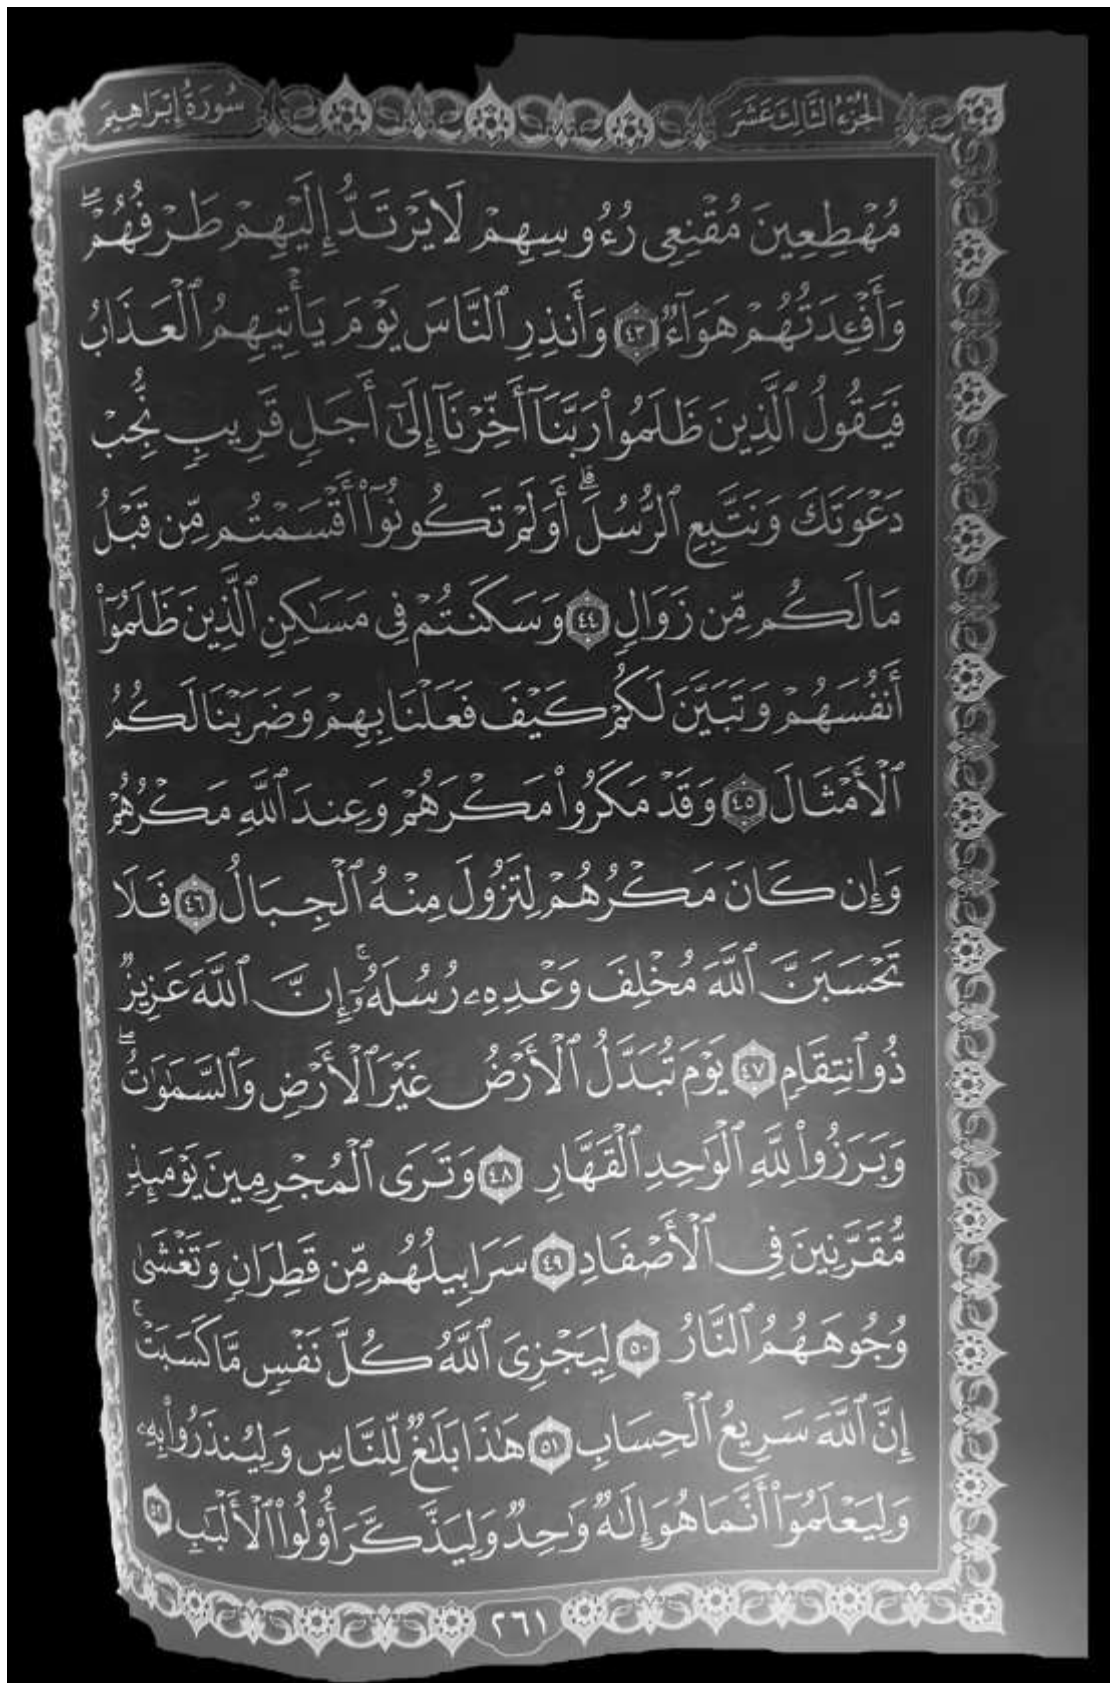 الجُزْءُ الثَّالِثَ عَشَرَ
سُورَةُ إِبْرَاهِيمَ
مُهْطِعِينَ مُقْنِعِى رُءُوسِهِمْ لَا يَرْتَدُّ إِلَيْهِمْ طَرْفُهُمْ ۖ
وَأَفْـِٔدَتُهُمْ هَوَآءٌ ٤٣ وَأَنذِرِ ٱلنَّاسَ يَوْمَ يَأْتِيهِمُ ٱلْعَذَابُ
فَيَقُولُ ٱلَّذِينَ ظَلَمُوا۟ رَبَّنَآ أَخِّرْنَآ إِلَىٰٓ أَجَلٍ قَرِيبٍ نُّجِبْ
دَعْوَتَكَ وَنَتَّبِعِ ٱلرُّسُلَ ۗ أَوَلَمْ تَكُونُوٓا۟ أَقْسَمْتُم مِّن قَبْلُ
مَا لَكُم مِّن زَوَالٍ ٤٤ وَسَكَنتُمْ فِى مَسَـٰكِنِ ٱلَّذِينَ ظَلَمُوٓا۟
أَنفُسَهُمْ وَتَبَيَّنَ لَكُمْ كَيْفَ فَعَلْنَا بِهِمْ وَضَرَبْنَا لَكُمُ
ٱلْأَمْثَالَ ٤٥ وَقَدْ مَكَرُوا۟ مَكْرَهُمْ وَعِندَ ٱللَّهِ مَكْرُهُمْ
وَإِن كَانَ مَكْرُهُمْ لِتَزُولَ مِنْهُ ٱلْجِبَالُ ٤٦ فَلَا
تَحْسَبَنَّ ٱللَّهَ مُخْلِفَ وَعْدِهِۦ رُسُلَهُۥٓ ۚ إِنَّ ٱللَّهَ عَزِيزٌ
ذُو ٱنتِقَامٍ ٤٧ يَوْمَ تُبَدَّلُ ٱلْأَرْضُ غَيْرَ ٱلْأَرْضِ وَٱلسَّمَـٰوَٰتُ ۖ
وَبَرَزُوا۟ لِلَّهِ ٱلْوَٰحِدِ ٱلْقَهَّارِ ٤٨ وَتَرَى ٱلْمُجْرِمِينَ يَوْمَئِذٍ
مُّقَرَّنِينَ فِى ٱلْأَصْفَادِ ٤٩ سَرَابِيلُهُم مِّن قَطِرَانٍ وَتَغْشَىٰ
وُجُوهَهُمُ ٱلنَّارُ ٥٠ لِيَجْزِىَ ٱللَّهُ كُلَّ نَفْسٍ مَّا كَسَبَتْ ۚ
إِنَّ ٱللَّهَ سَرِيعُ ٱلْحِسَابِ ٥١ هَـٰذَا بَلَـٰغٌ لِّلنَّاسِ وَلِيُنذَرُوا۟ بِهِۦ
وَلِيَعْلَمُوٓا۟ أَنَّمَا هُوَ إِلَـٰهٌ وَٰحِدٌ وَلِيَذَّكَّرَ أُو۟لُوا۟ ٱلْأَلْبَـٰبِ ٥٢
٢٦١